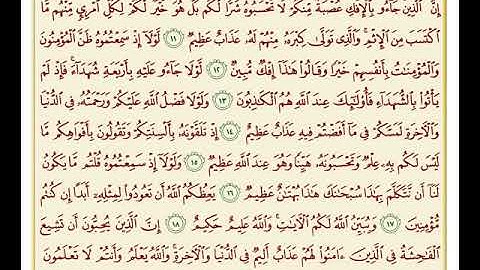 إِنَّ الَّذِينَ جَاءُو بِالْإِفْكِ عُصْبَةٌ مِّنكُمْ لَا تَحْسَبُوهُ شَرًّا لَّكُم بَلْ هُوَ خَيْرٌ لَّكُمْ لِكُلِّ امْرِئٍ مِّنْهُم مَّا
اكْتَسَبَ مِنَ الْإِثْمِ وَالَّذِي تَوَلَّىٰ كِبْرَهُ مِنْهُمْ لَهُ عَذَابٌ عَظِيمٌ ١١ لَوْلَا إِذْ سَمِعْتُمُوهُ ظَنَّ الْمُؤْمِنُونَ
وَالْمُؤْمِنَٰتُ بِأَنفُسِهِمْ خَيْرًا وَقَالُوا هَٰذَا إِفْكٌ مُّبِينٌ ١٢ لَوْلَا جَاءُو عَلَيْهِ بِأَرْبَعَةِ شُهَدَاءَ فَإِذْ لَمْ
يَأْتُوا بِالشُّهَدَاءِ فَأُولَٰئِكَ عِندَ اللَّهِ هُمُ الْكَٰذِبُونَ ١٣ وَلَوْلَا فَضْلُ اللَّهِ عَلَيْكُمْ وَرَحْمَتُهُ فِي الدُّنْيَا
وَالْآخِرَةِ لَمَسَّكُمْ فِي مَا أَفَضْتُمْ فِيهِ عَذَابٌ عَظِيمٌ ١٤ إِذْ تَلَقَّوْنَهُ بِأَلْسِنَتِكُمْ وَتَقُولُونَ بِأَفْوَاهِكُم مَّا
لَيْسَ لَكُم بِهِ عِلْمٌ وَتَحْسَبُونَهُ هَيِّنًا وَهُوَ عِندَ اللَّهِ عَظِيمٌ ١٥ وَلَوْلَا إِذْ سَمِعْتُمُوهُ قُلْتُم مَّا يَكُونُ
لَنَا أَن نَّتَكَلَّمَ بِهَٰذَا سُبْحَٰنَكَ هَٰذَا بُهْتَٰنٌ عَظِيمٌ ١٦ يَعِظُكُمُ اللَّهُ أَن تَعُودُوا لِمِثْلِهِ أَبَدًا إِن كُنتُم
مُّؤْمِنِينَ ١٧ وَيُبَيِّنُ اللَّهُ لَكُمُ الْآيَٰتِ وَاللَّهُ عَلِيمٌ حَكِيمٌ ١٨ إِنَّ الَّذِينَ يُحِبُّونَ أَن تَشِيعَ
الْفَٰحِشَةُ فِي الَّذِينَ ءَامَنُوا لَهُمْ عَذَابٌ أَلِيمٌ فِي الدُّنْيَا وَالْآخِرَةِ وَاللَّهُ يَعْلَمُ وَأَنتُمْ لَا تَعْلَمُونَ